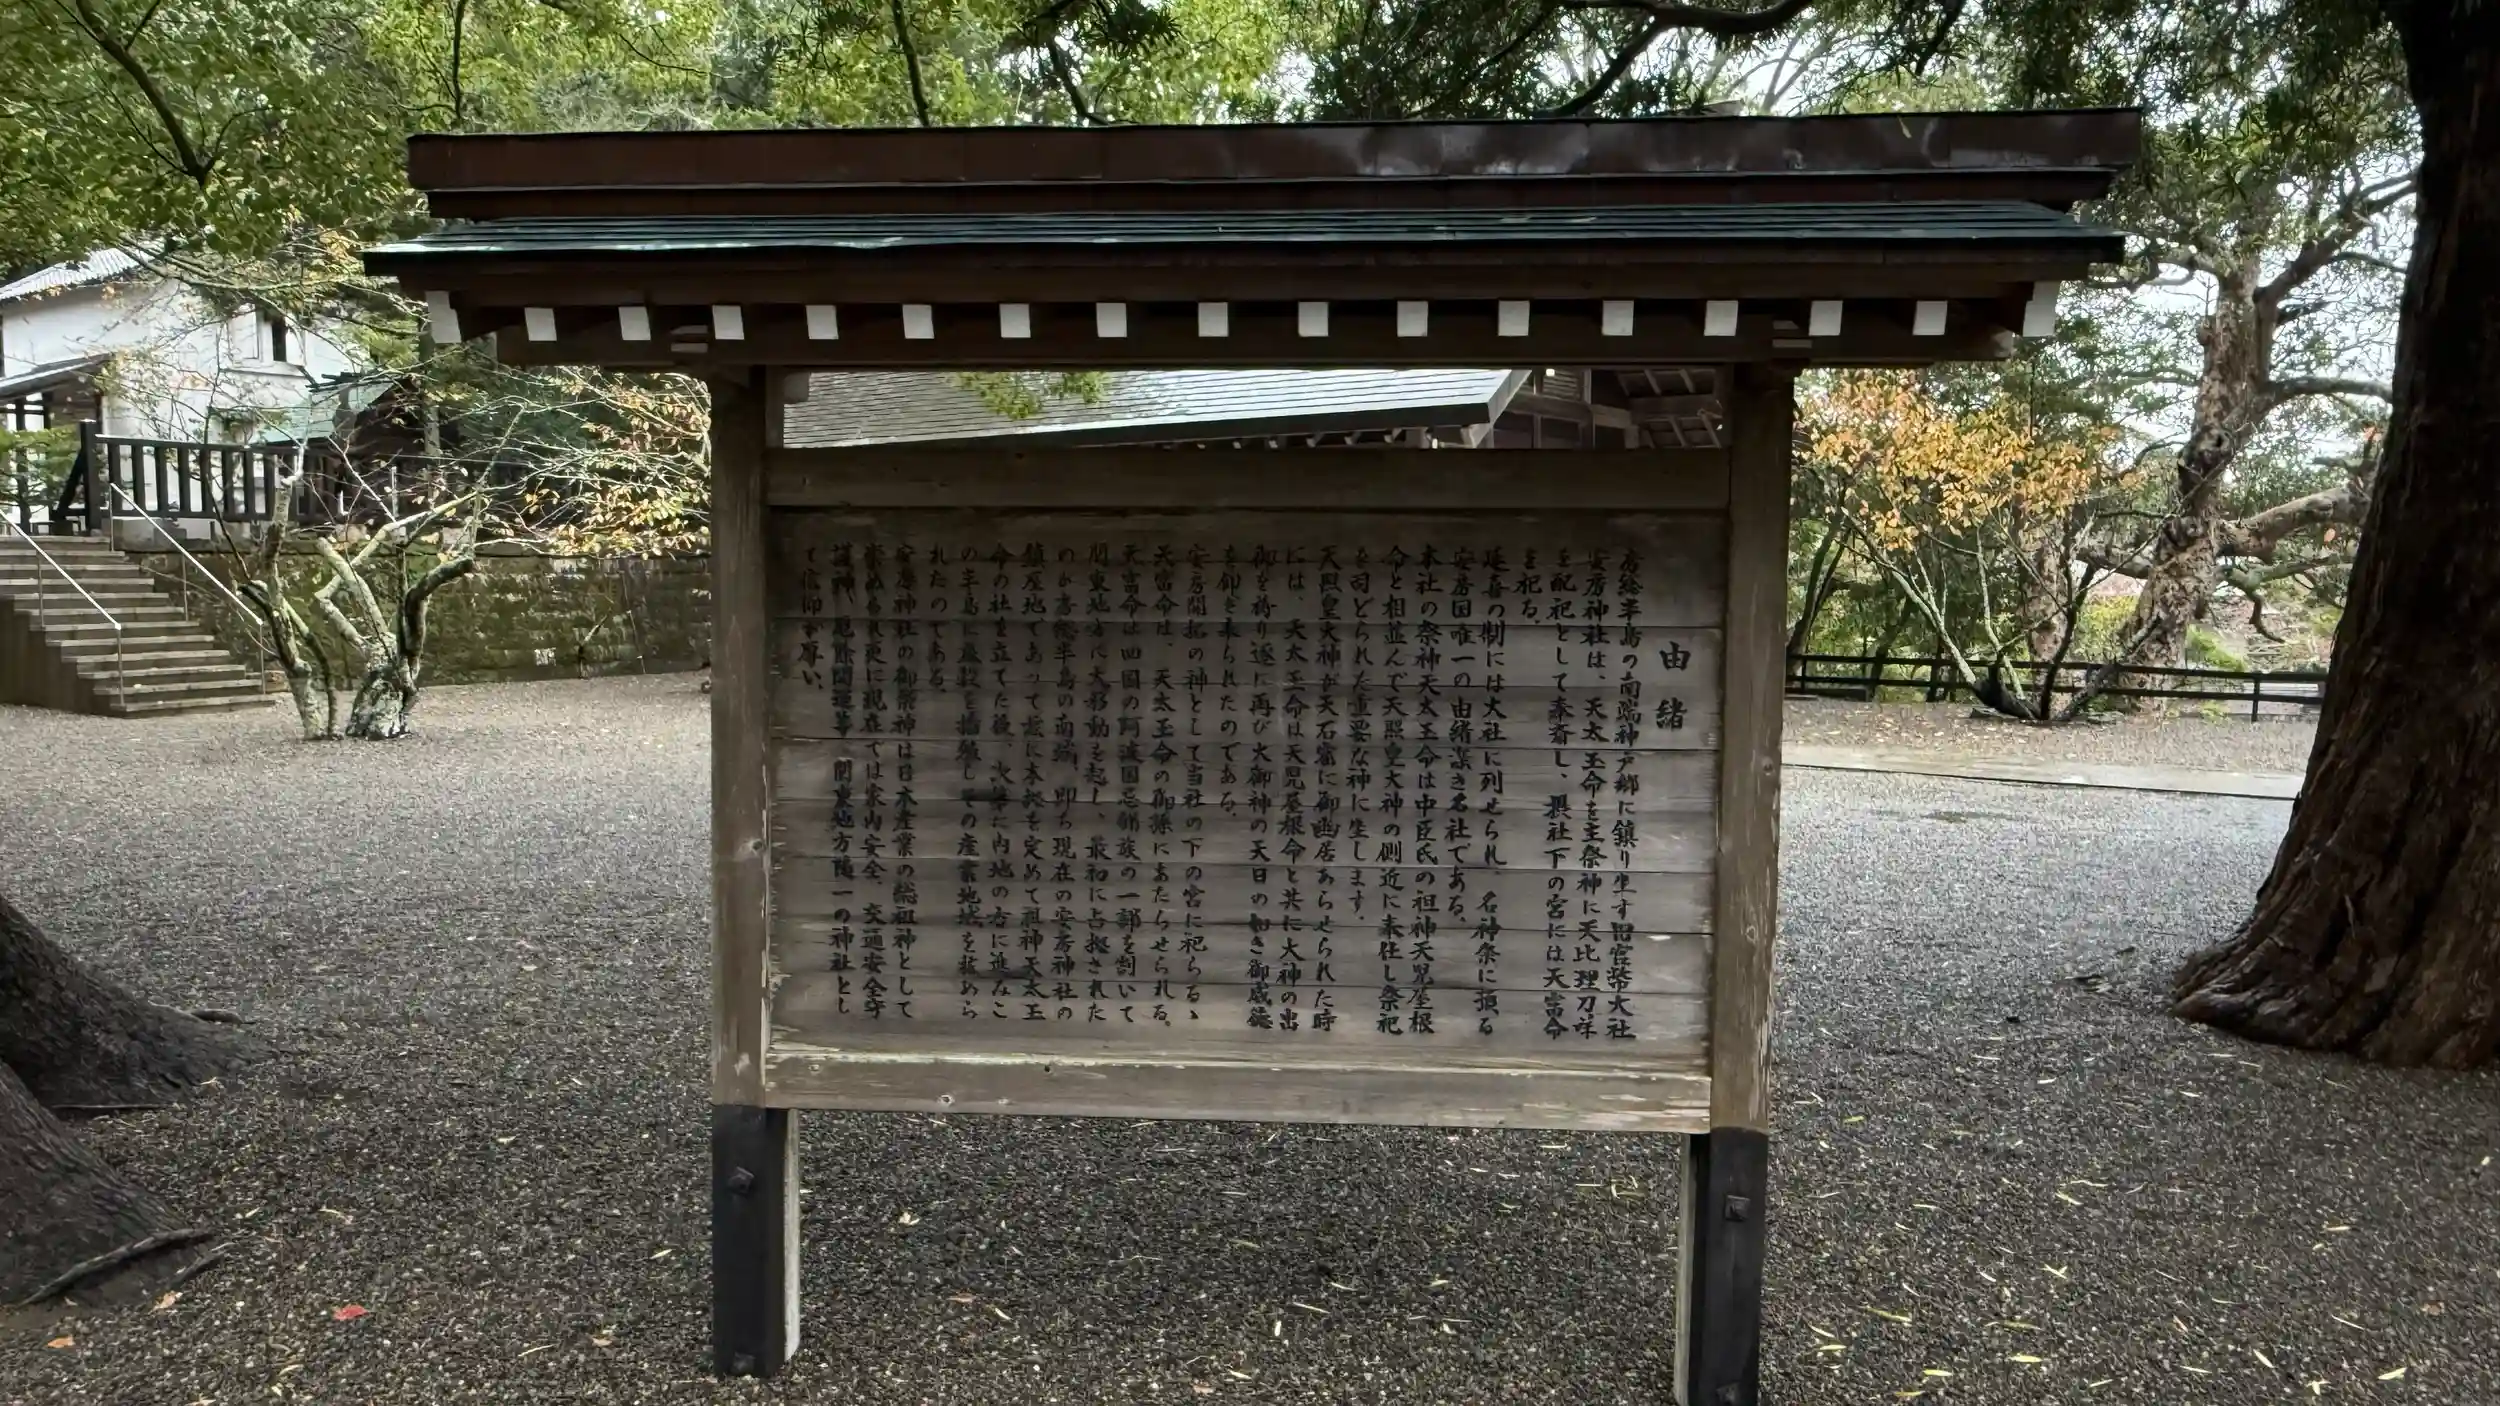 由緒
房総半島の南端神戸郷に鎮り坐す旧官幣大社
安房神社は、天太玉命を主祭神に天比理刀咩
を配祀として奉斎し、摂社下の宮には天富命
を祀る。
延喜の制には大社に列せられ、名神祭に預る
安房国唯一の由緒深き名社である。
本社の祭神天太玉命は中臣氏の祖神天児屋根
命と相並んで天照皇大神の側近に奉仕し祭祀
を司どられた重要な神に坐します。
天照皇大神が天石窟に御幽居あらせられた時
には、天太玉命は天児屋根命と共に大神の出
御を祷り遂に再び大御神の天日の如き御威徳
を仰ぎ奉られたのである。
安房開拓の神として当社の下の宮に祀らるゝ
天富命は、天太玉命の御孫にあたらせられる。
天富命は四国の阿波国忌部族の一部を割いて
関東地方に大移動を起し、最初に占拠された
のが房総半島の南域、即ち現在の安房神社の
鎮座地であって茲に本拠を定めて祖神天太玉
命の社を立てた後、次第に内地の方に進みこ
の半島に麻穀を播殖しその産業地域を拡めら
れたのである。
安房神社の御祭神は日本産業の総祖神として
崇められ更に現在では家内安全、交通安全守
護神、厄除開運等、関東地方随一の神社とし
て信仰が厚い、